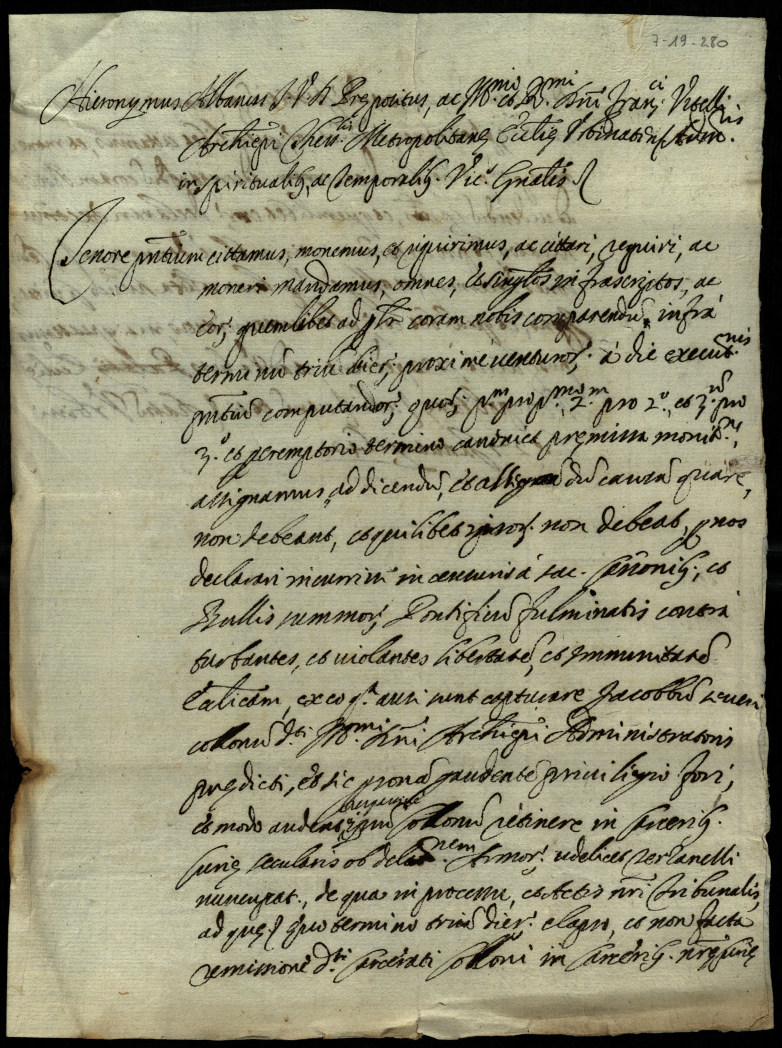 7-19-280
Hieronymus Albanus J. V. D. Prępositus, ac Ill.mi et R.mi Dni Fran.ci Vitelli
Archiepi Thess.cis Metropolitanę Eccl.ię Urbinatensis Admin.ris
in spiritualib; ac temporalib; Vic.s Gnalis
Tenore pntium cittamus, monemus, et requirimus, ac cittari, requiri, ac
moneri mandamus, omnes, et singulos infrascriptos, ac
eor; quemlibet ad pnr coram nobis comparendũ infra
terminũ triũ dier; proxime venturor; à die execut.nis
pntiũ computandor; quor; p.m pro p.mo 2.m pro 2.o, et 3.m pro
3.o et peremptorio termino canonica pręmissa monit.ne,
assignamus, ad dicendũ, et allegandũ causam quare,
non debeant, et quilibet ipsor; non debeat, p nos
declarari incurrisse in censuris à sac. Canonib; et
Bullis summor; Pontificũ fulminatis contra
turbantes, et violantes libertatẽ, et immunitatẽ
Eccl.icam, ex eo q.d ausi sunt capturare Jacobbũ
collonũ d.ti Ill.mi Dni Archiepi Administratoris
prędicti, et sic pronã gaudentẽ privilegio fori,
et modo audent ipsũ collonũ retinere in Carcerib;
Curię secularis ob delat.nem Armor; videlicet Terzanelli
nuncupat., de qua in processu, et Actis nri Tribunalis,
ad quę; quo termino triũ dier; elapso, et non facta
remissione d.ti Carcerati Colloni in Carcerib; nrę Curię